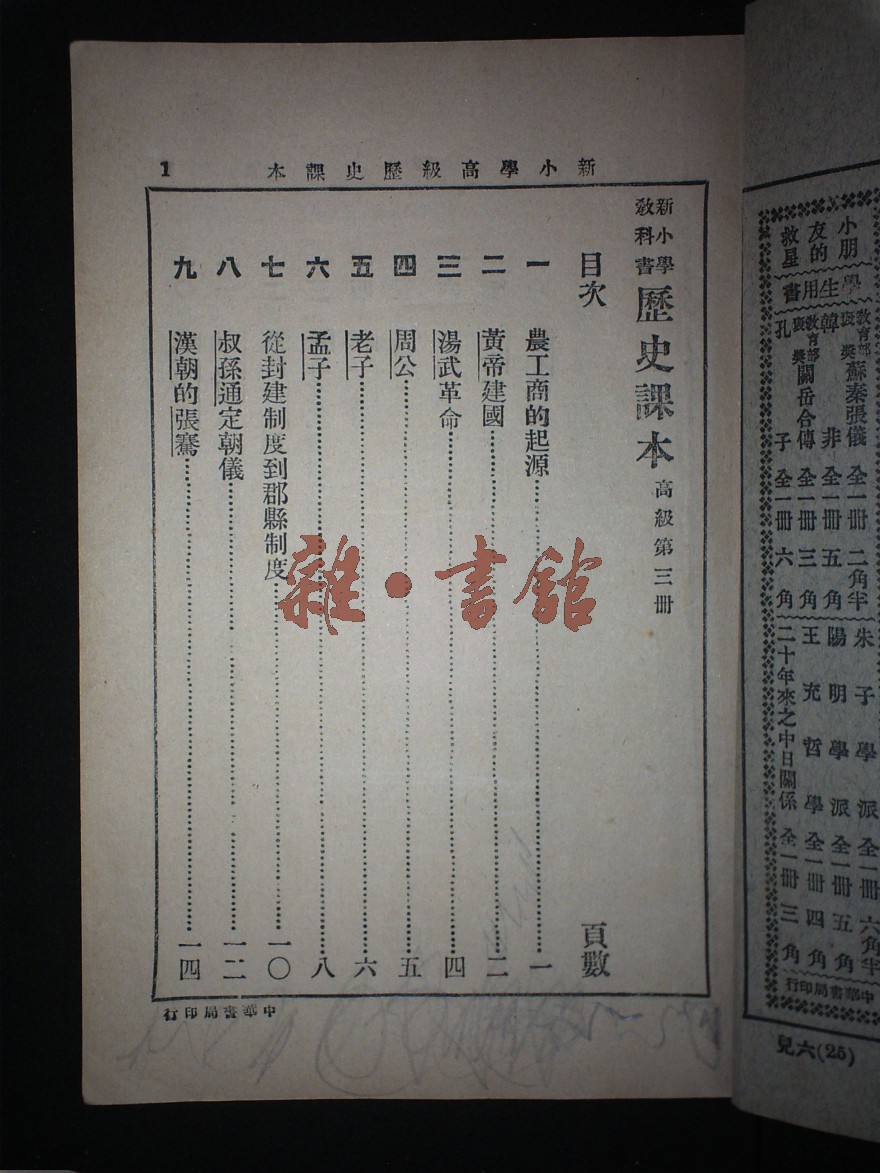 新小學高級歷史課本
1
新小學
教科書
歷史課本 高級第三冊
目次 頁數
一 農工商的起源 一
二 黃帝建國 二
三 湯武革命 四
四 周公 五
五 老子 六
六 孟子 八
七 從封建制度到郡縣制度 一〇
八 叔孫通定朝儀 一二
九 漢朝的張騫 一四
中華書局印行
雜·書館
小朋
友的
救星
學生用書
教育部
褒獎
蘇秦張儀 全一冊 二角半
韓非 全一冊 五角
教育部
褒獎
關岳合傳 全一冊 三角
孔子 全一冊 六角
朱子學派 全一冊 六角半
陽明學派 全一冊 五角
王充哲學 全一冊 四角
二十年來之中日關係 全一冊 三角
中華書局印行
兒六(25)